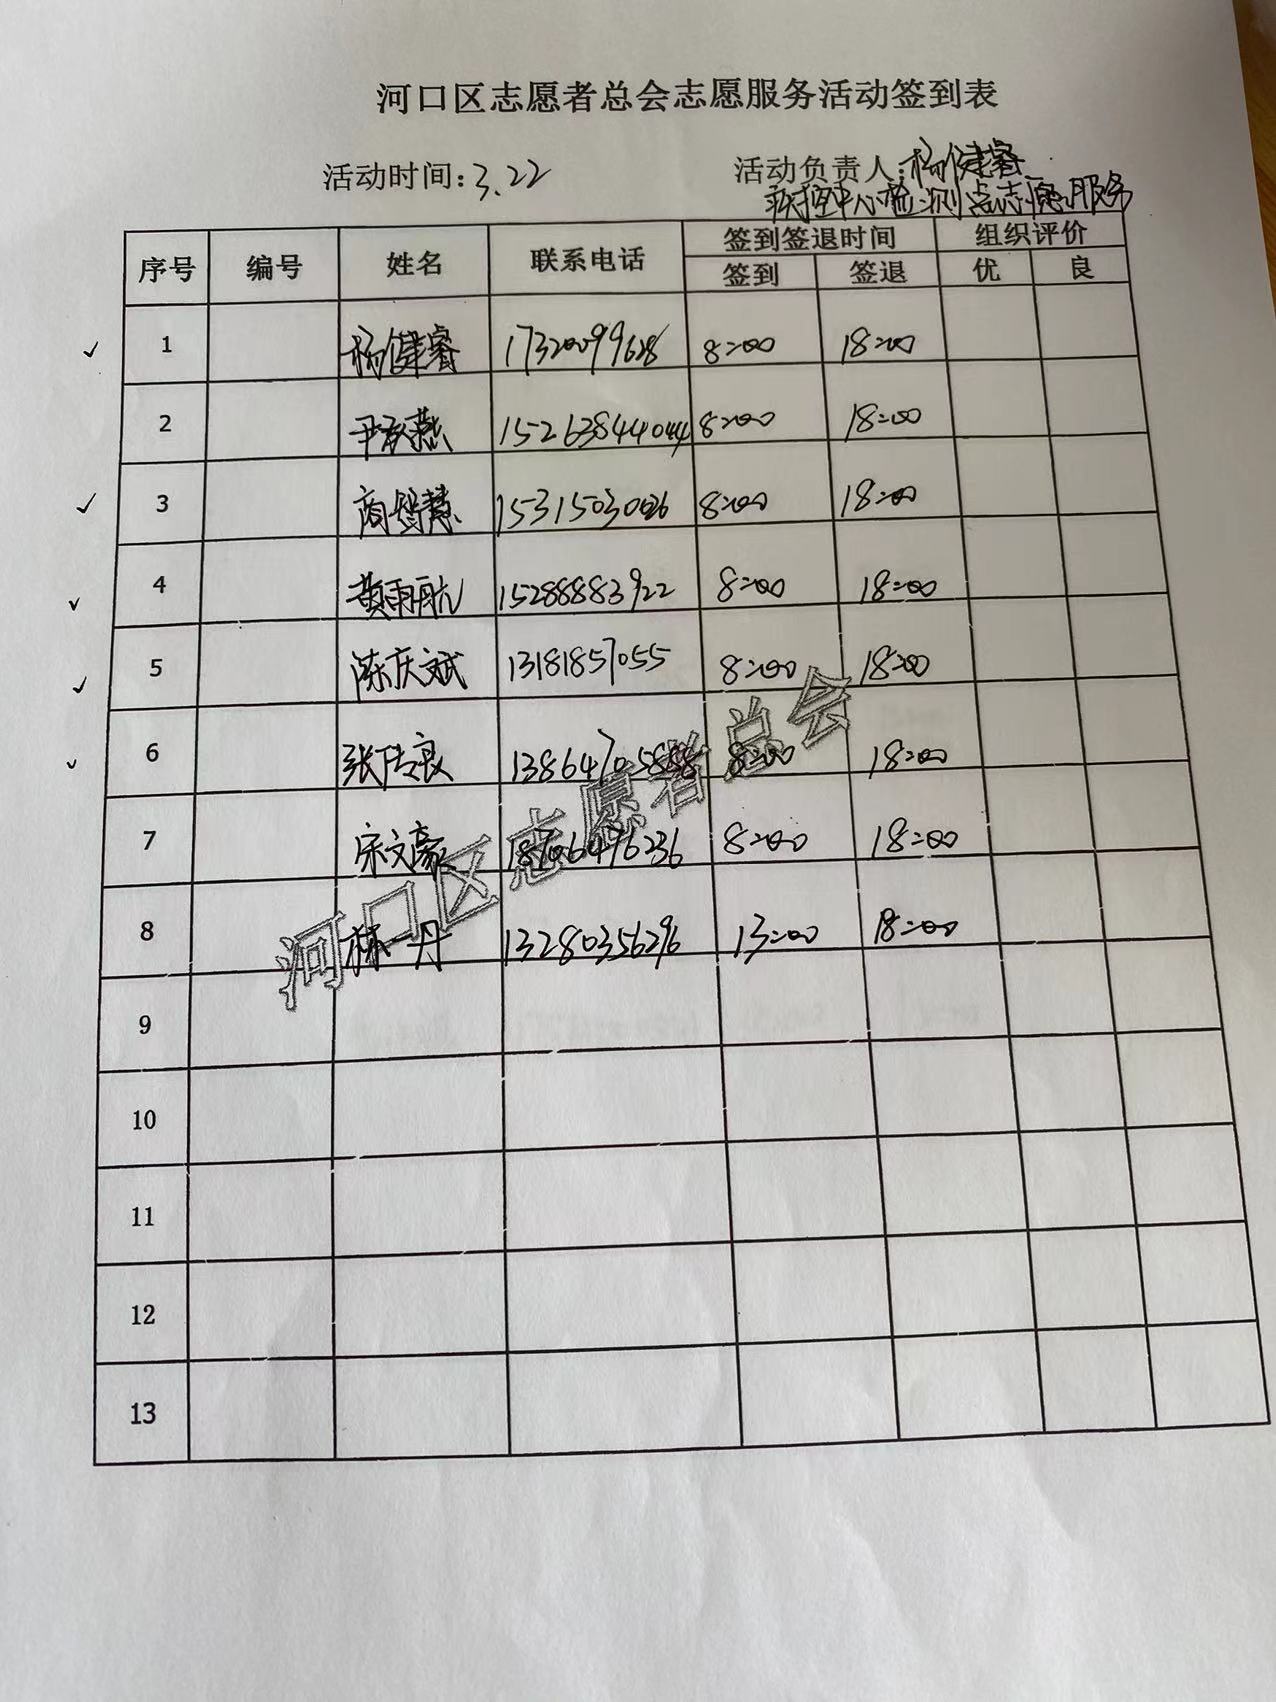 河口区志愿者总会志愿服务活动签到表
活动时间:3.22 活动负责人:杨健睿
疾控中心检测点志愿服务
序号 编号 姓名 联系电话 签到签退时间 组织评价
签到 签退 优 良
1 杨健睿 17320099628 8:00 18:00
2 尹秋燕 15263844044 8:00 18:00
3 商智慧 15315030026 8:00 18:00
4 黄雨航 15288883922 8:00 18:00
5 陈庆斌 13181857055 8:00 18:00
6 张传良 13864705888 8:00 18:00
7 宋文豪 18706496236 8:00 18:00
8 林一丹 13280356296 13:00 18:00
9
10
11
12
13
河口区志愿者总会